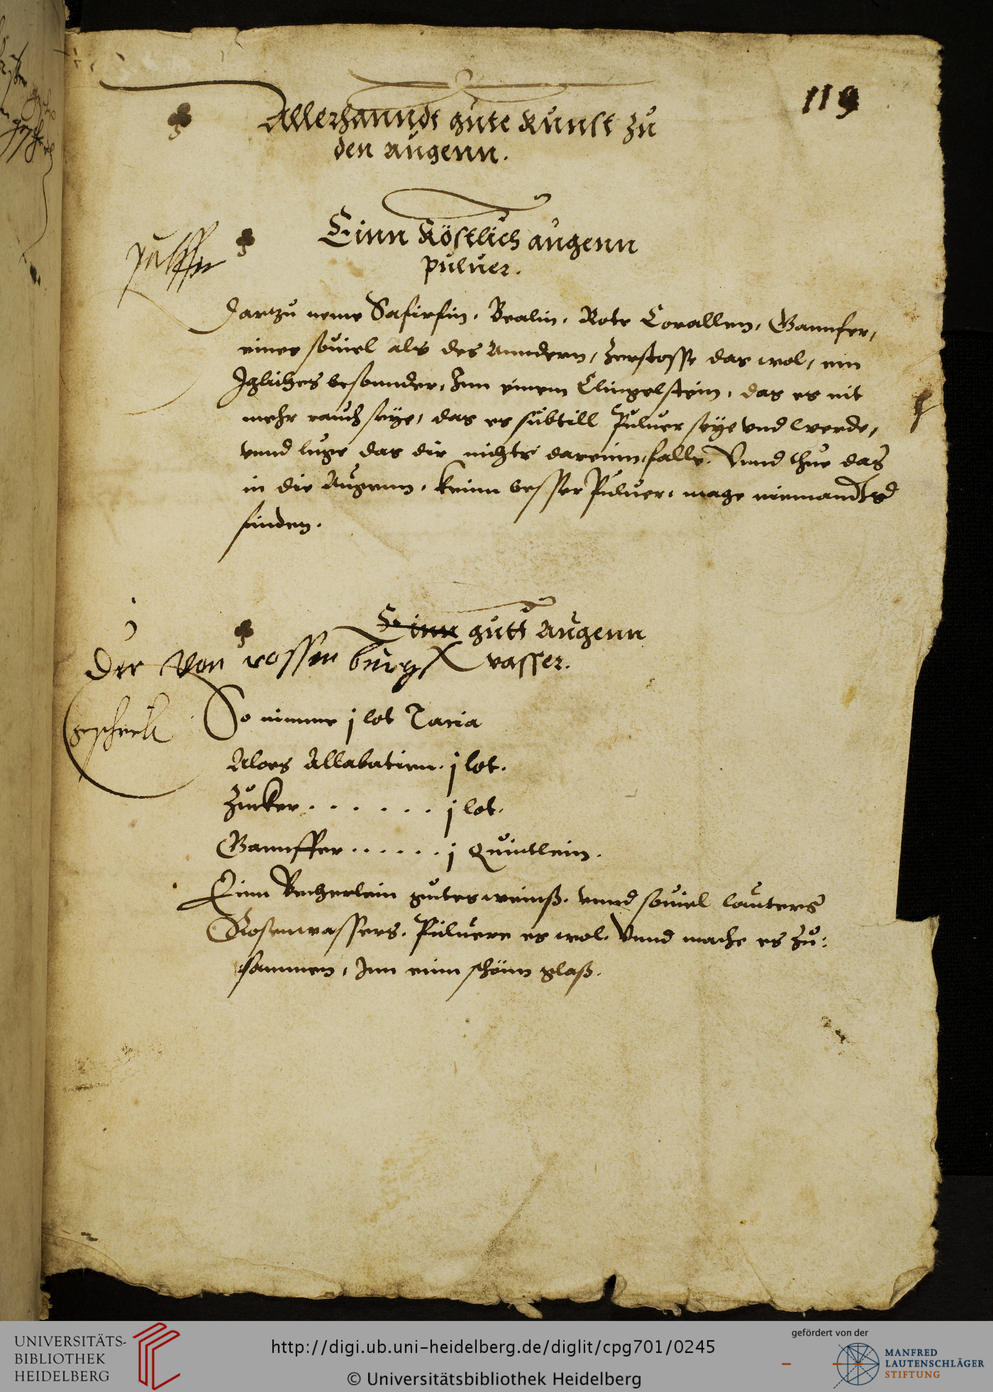 119
Allerhanndt gute Kunst zu
den augenn.
Einn Köstlich augenn
puluer.
pulffer
Darzu neme Safirsin, Bralin, Rote Corallen, Gannfer,
eines souiel als des Anndern, Zerstosse das wol, ein
Jgliches besonnder, Jnn einem Clingelstein, das es nit
mehr rauch seye, das es subtill Puluer seye vnd werde,
vnnd luge das dir nichts dareinn falle, Vnnd thue das
in die Augenn, keinn besser Puluer, mage niemandts
finden.
Einn gutt Augenn
wasser.
Der von rossen burg
geschrib
So nimme j lot Tacia
Aloes Allabatien. j lot.
Zucker . . . . . . j lot.
Gannffer . . . . . j Quintlein.
Einn Becherlein gutes weinß, vnnd souiel lauters
Rosenwassers, Puluere es wol, Vnnd mache es zu:
sammen, Jnn einn schönn glaß.
UNIVERSITÄTS-
BIBLIOTHEK
HEIDELBERG
http://digi.ub.uni-heidelberg.de/diglit/cpg701/0245
© Universitätsbibliothek Heidelberg
gefördert von der
MANFRED
LAUTENSCHLÄGER
STIFTUNG